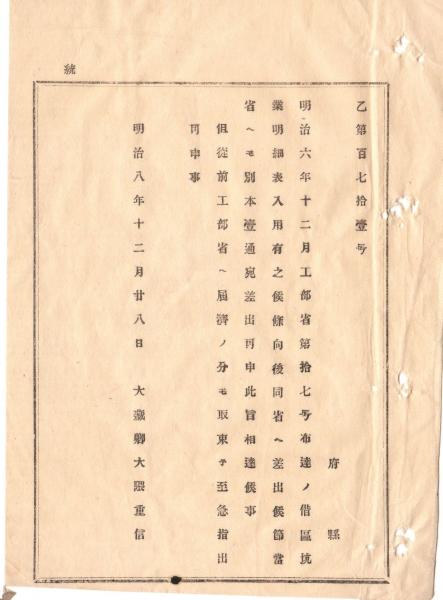 乙第百七拾壹号
府縣
明治六年十二月工部省第拾七号布達ノ借區坑
業明細表入用有之候條向後同省ヘ差出候節當
省ヘモ別本壹通宛差出可申此旨相達候事
但從前工部省ヘ屆濟ノ分モ取束子至急指出
可申事
明治八年十二月廿八日 大藏卿大隈重信
統